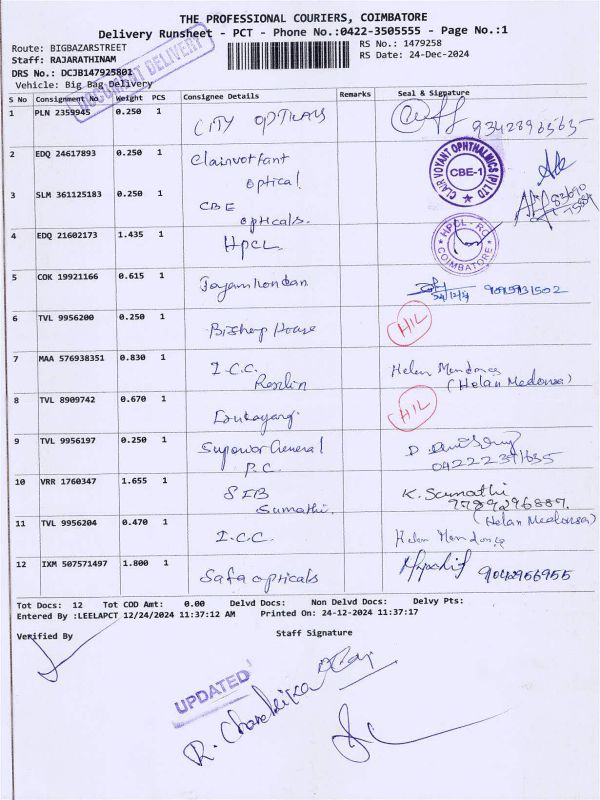 THE PROFESSIONAL COURIERS, COIMBATORE
Delivery Runsheet - PCT - Phone No.:0422-3505555 - Page No.:1
Route: BIGBAZARSTREET
RS No.: 1479258
Staff: RAJARATHINAM
RS Date: 24-Dec-2024
DRS No.: DCJB147925801
Vehicle: Big Bag Delivery
DOCUMENT DELIVERY
S No Consignment No Weight PCS Consignee Details Remarks Seal & Signature
1 PLN 2359945 0.250 1 CITY OPTICALS
2 EDQ 24617893 0.250 1 Clairvottant
optical
CLAIR VOYANT OPHTHALMICS (P) LTD
CBE-1
3 SLM 361125183 0.250 1 CBE
opticals.
82690
4 EDQ 21602173 1.435 1 HPCL
HPCL - RO
COIMBATORE
5 COK 19921166 0.615 1 Jayamkondan
24/12/24
6 TVL 9956200 0.250 1 Bishop House
H/L
7 MAA 576938351 0.830 1 I.C.C.
Roslin
Helen Mendonca
(Helan Medonsa)
8 TVL 8909742 0.670 1
H/L
9 TVL 9956197 0.250 1 Superior General
P.C.
04222391635
10 VRR 1760347 1.655 1 SIB
Sumathi.
K. Sumathi
11 TVL 9956204 0.470 1 I.C.C.
(Helan Medonsa)
Helen Mendonca
12 IXM 507571497 1.800 1 Safa opticals
9042956955
Tot Docs: 12 Tot COD Amt: 0.00 Delvd Docs: Non Delvd Docs: Delvy Pts:
Entered By :LEELAPCT 12/24/2024 11:37:12 AM Printed On: 24-12-2024 11:37:17
Verified By Staff Signature
UPDATED
R. Chandrika